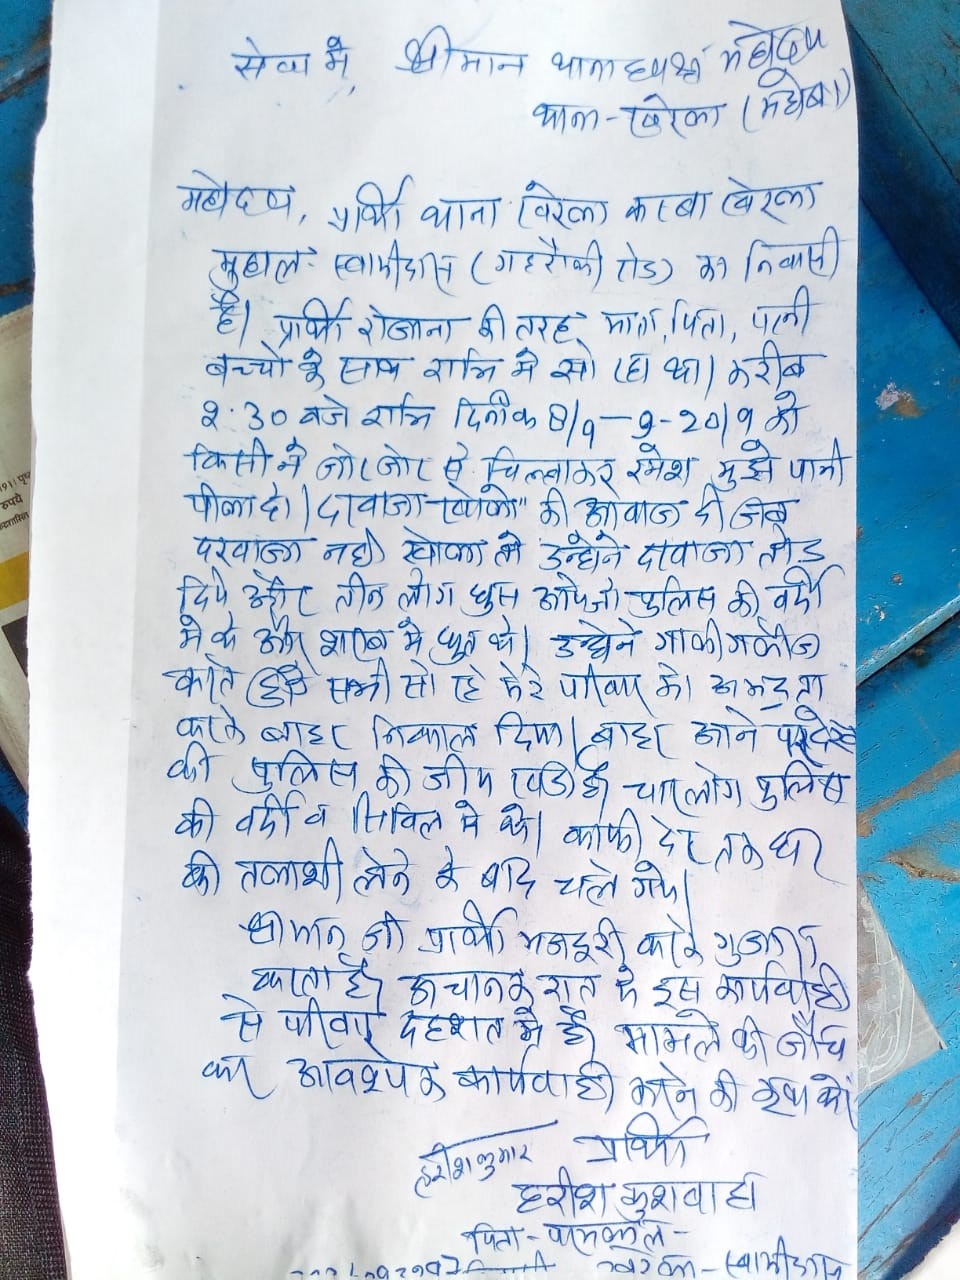 सेवा में, श्रीमान थानाध्यक्ष महोदय
थाना - खरेला (महोबा)
महोदय, प्रार्थी थाना खरेला कस्बा खरेला
मुहाल - स्वामीदास (गहरौली रोड) का निवासी
है। प्रार्थी रोजाना की तरह माता, पिता, पत्नी
बच्चो के साथ रात्रि मे सो रहा था। करीब
2.30 बजे रात्रि दिनांक 8/9-9-2019 को
किसी ने जोर जोर से चिल्लाकर रमेश मुझे पानी
पीला दे। दरवाजा खोलो" की आवाज दी जब
दरवाजा नही खोला तो उन्होने दरवाजा तोड़
दिये और तीन लोग घुस आये जो पुलिस की वर्दी
मे थे और शराब मे धुत थे। उन्होने गाली गलौज
करते हुये सभी सो रहे मेरे परिवार को अभद्रता
करके बाहर निकाल दिया। बाहर आने पर देखा
की पुलिस की जीप खडी है चार लोग पुलिस
की वर्दी व सिविल मे थे। काफी देर तक घर
की तलाशी लेने के बाद चले गये।
श्रीमान जी प्रार्थी मजदूरी करके गुजारा
करता है। अचानक रात के इस कार्यवाही
से परिवार दहशत मे है। मामले की जाँच
कर आवश्यक कार्यवाही करने की कृपा करें
हरीश कुमार प्रार्थी
हरीश कुशवाहा
पिता -
खरेला - स्वामीदास